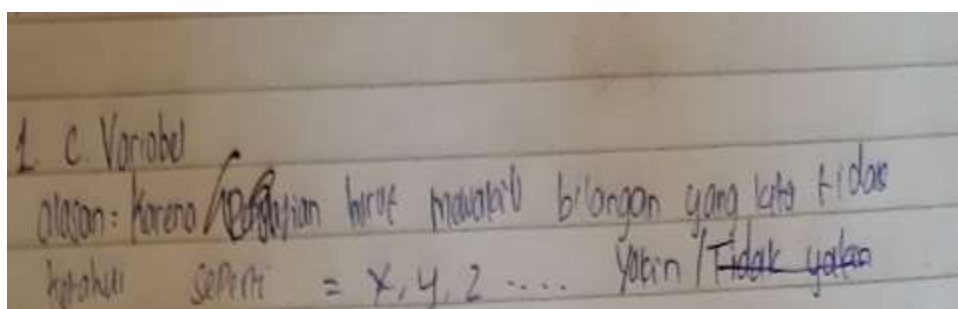 1. C. Variabel
alasan: Karena huruf mewakili bilangan yang kita tidak
ketahui seperti = x, y, z .... Yakin / Tidak yakin